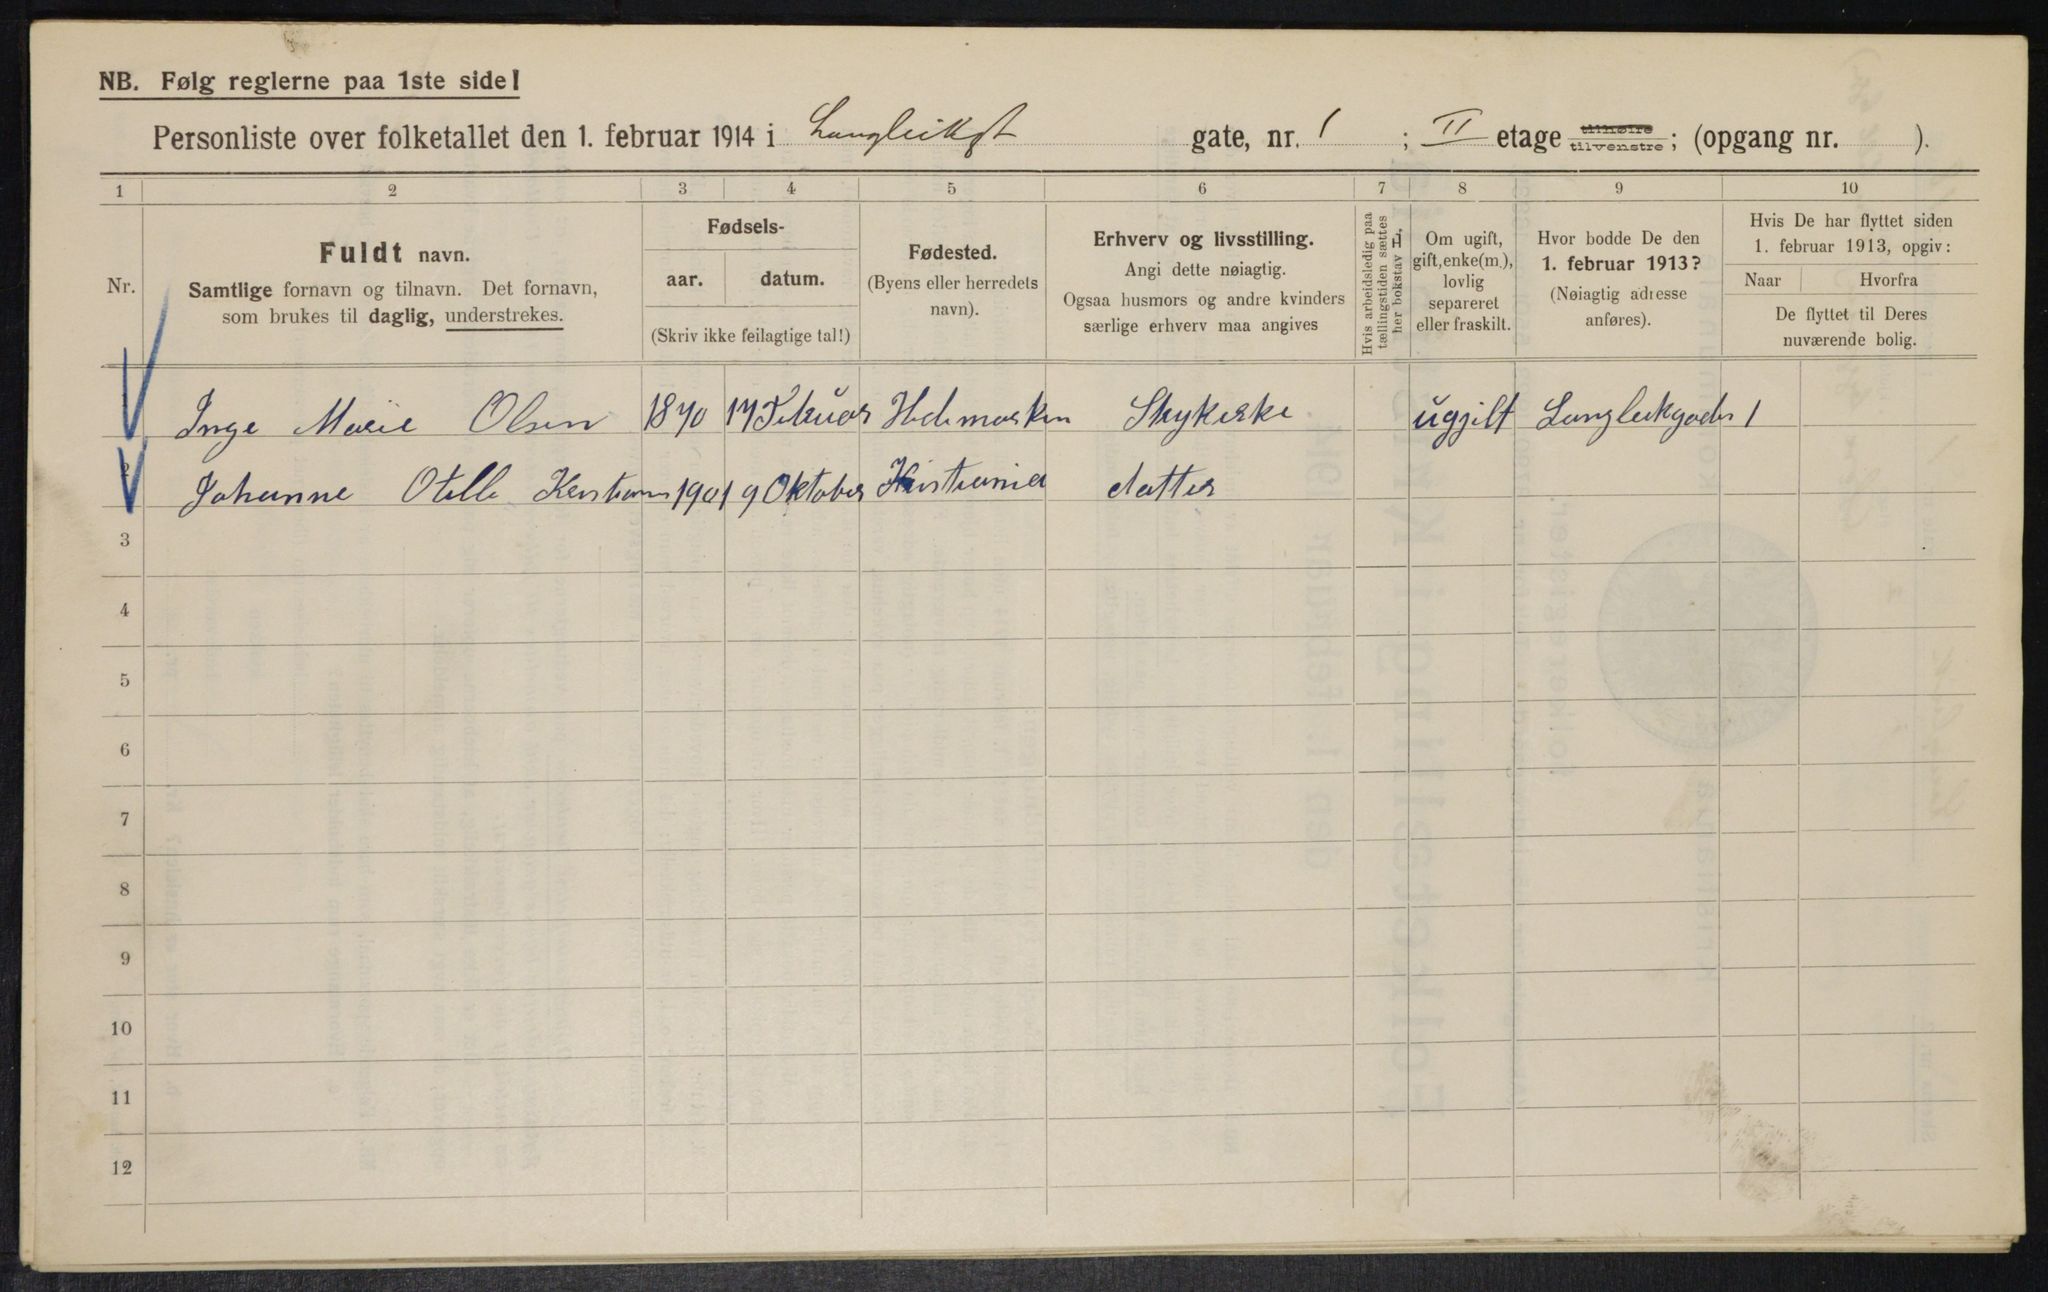 NB. Følg reglerne paa 1ste side!
Personliste over folketallet den 1. februar 1914 i Langleiksgt gate, nr. 1 ; II etage tilhøire tilvenstre; (opgang nr. ).
1 2 3 4 5 6 7 8 9 10
Nr.
Fuldt navn.
Samtlige fornavn og tilnavn. Det fornavn,
som brukes til daglig, understrekes.
Fødsels-
aar. datum.
(Skriv ikke feilagtige tal!)
Fødested.
(Byens eller herredets
navn).
Erhverv og livsstilling.
Angi dette nøiagtig.
Ogsaa husmors og andre kvinders
særlige erhverv maa angives
Hvis arbeidsledig paa
tællingstiden sættes
her bokstav L.
Om ugift,
gift, enke(m.),
lovlig
separeret
eller fraskilt.
Hvor bodde De den
1. februar 1913?
(Nøiagtig adresse
anføres).
Hvis De har flyttet siden
1. februar 1913, opgiv:
Naar Hvorfra
De flyttet til Deres
nuværende bolig.
Inge Marie Olsen 1870 17 Februar Hedemarken ugjilt 1
2 Johanne Otelle 1901 9 Oktober Kristiania datter
3
4
5
6
7
8
9
10
11
12